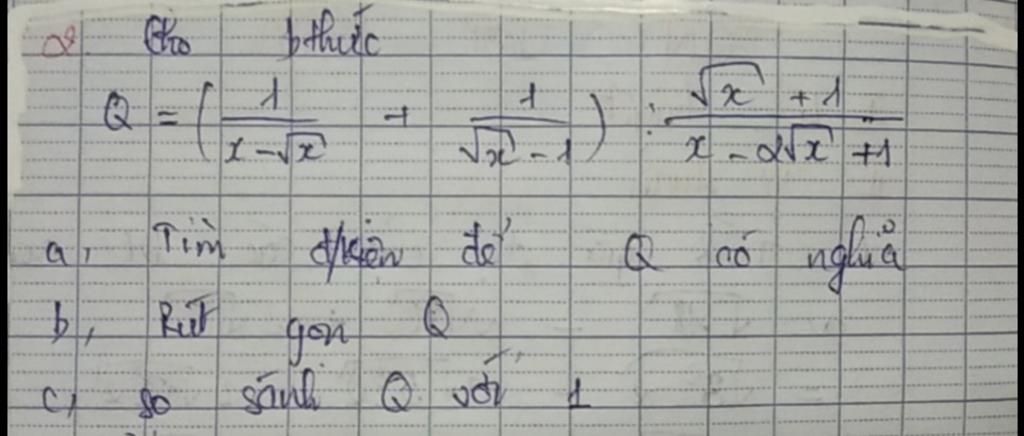 2. Cho bthức
Q = ( 1/(x - √x) + 1/(√x - 1) ) : (√x + 1)/(x - 2√x + 1)
a, Tìm đkiện để Q có nghĩa
b, Rút gọn Q
c, so sánh Q với 1